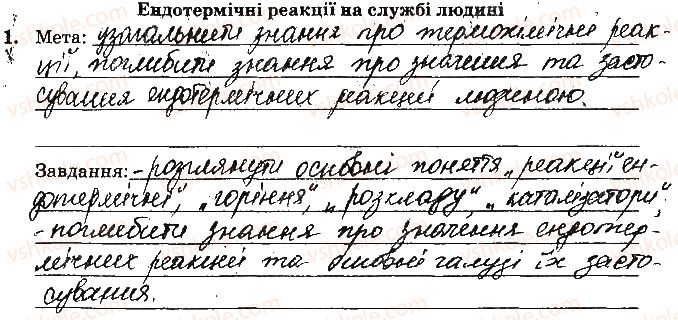 Ендотермічні реакції на службі людині
1. Мета: узагальнити знання про термохімічні реак-
ції, поглибити знання про значення та засто-
сування ендотермічних реакцій людиною.
Завдання: - розглянути основні поняття „реакції ен-
дотермічні", „горіння", „розкладу", „каталізатори".
- поглибити знання про значення ендотер-
мічних реакцій та основні галузі їх засто-
сування.